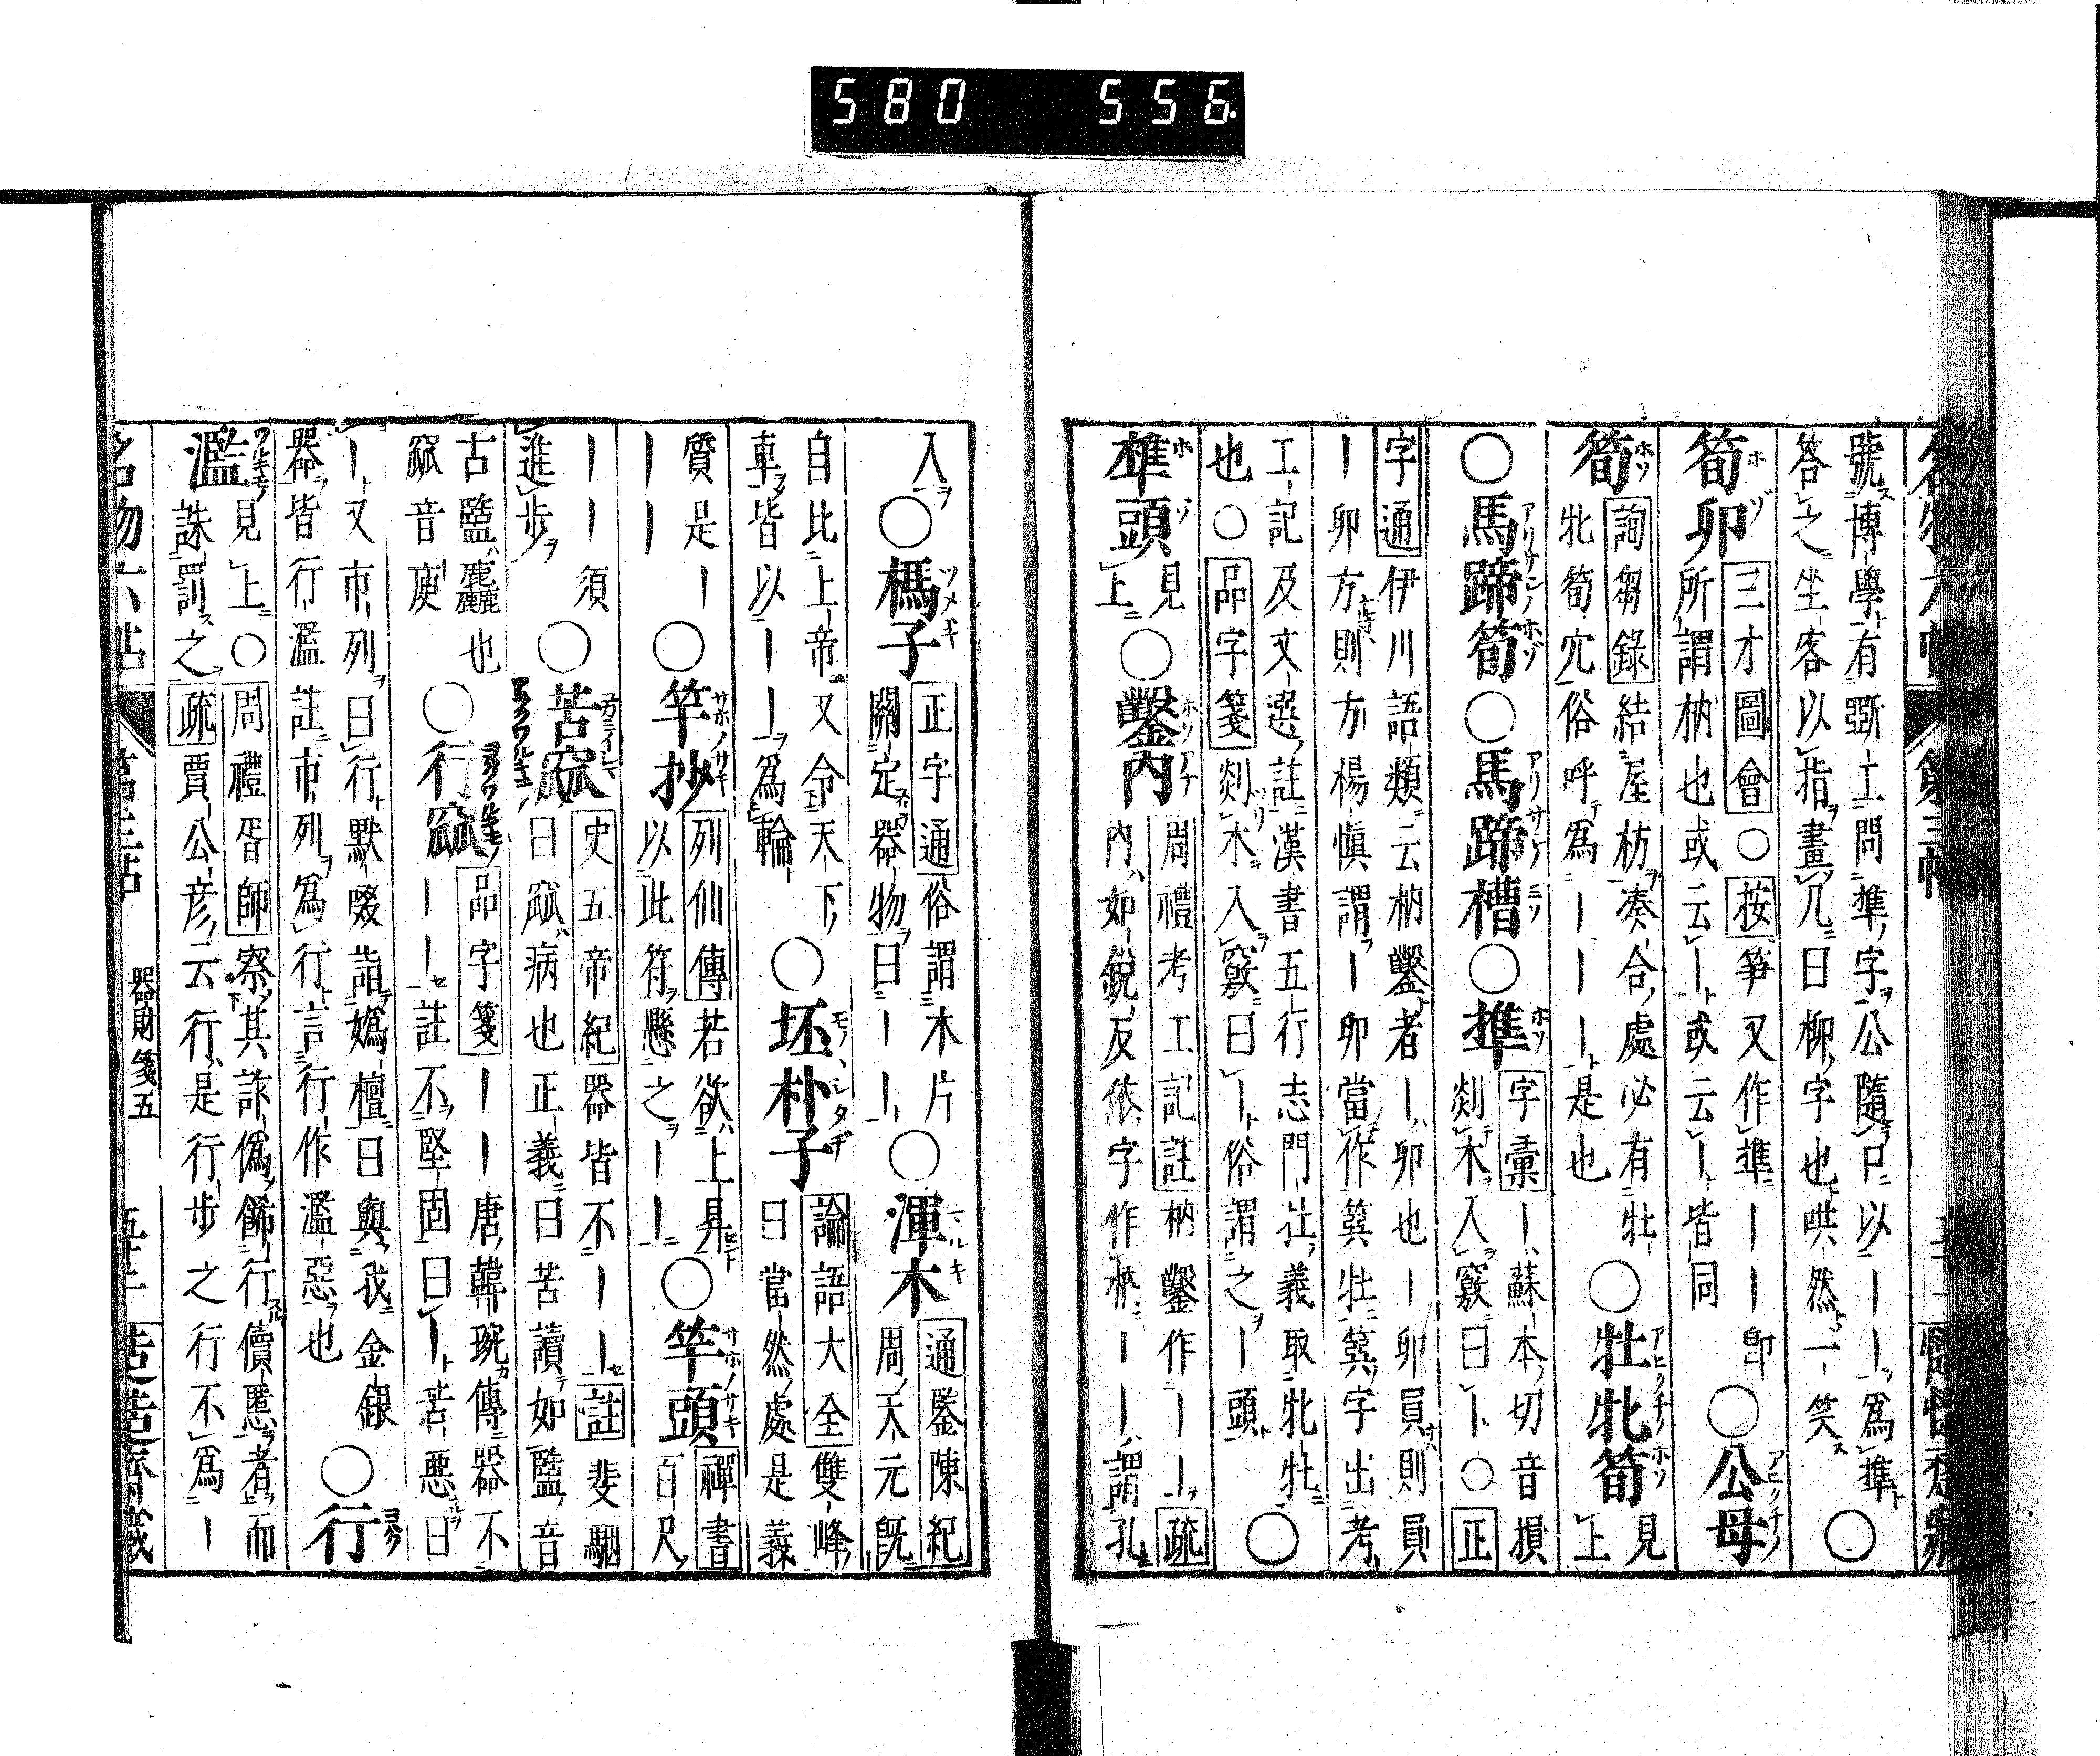 580 556
號博學有斲士問準字公隨口以丨丨爲準
答之坐客以指畫几曰柳字也哄然一笑 ○
筍卯 三才圖會○按笋又作準丨丨卽
所謂枘也或云丨或云丨皆同 ○公母
筍 詢芻錄結屋枋湊合處必有牡
牝筍穴俗呼爲丨丨丨是也 ○牡牝筍 見上
○馬蹄筍○馬蹄槽○準 字彙丨蘇本切音損
剡木入竅曰丨○正
字通伊川語類云枘鑿者丨卯也丨卯員則員
丨卯方則方楊愼謂丨卯當作簨牡簨字出考
工記及文選註漢書五行志門牡義取牝牡
也○品字箋剡木入竅曰丨俗謂之丨頭 ○
榫頭 見上 ○鑿內 周禮考工記註枘鑿作丨丨疏
內如銳反依字作枘丨丨謂孔
入 ○榪子 正字通俗謂木片
關定器物曰丨丨 ○渾木 通鑒陳紀
周天元旣
自比上帝又令天下
車皆以丨丨爲輪 ○坯朴子 論語大全雙峰
曰當然處是義
質是丨
丨丨 ○竿抄 列仙傳若欲上昇
以此符懸之丨丨 ○竿頭 禪書
百尺
丨丨須
進步 ○苦窳 史五帝紀器皆不丨丨註裴駰
曰窳病也正義曰苦讀如盬音
古盬麤也
窳音庾 ○行窳 品字箋丨丨唐韓琬傳器不
丨丨註不堅固曰丨苦惡曰
丨又市列曰行默啜詣嬀檀曰與我金銀
器皆行濫註市列爲行言行作濫惡也 ○行
濫 見上○周禮胥師察其詐僞飾行儥慝者而
誅罰之疏賈公彦云行是行步之行不爲丨
名物六帖 第三帖 器財箋五